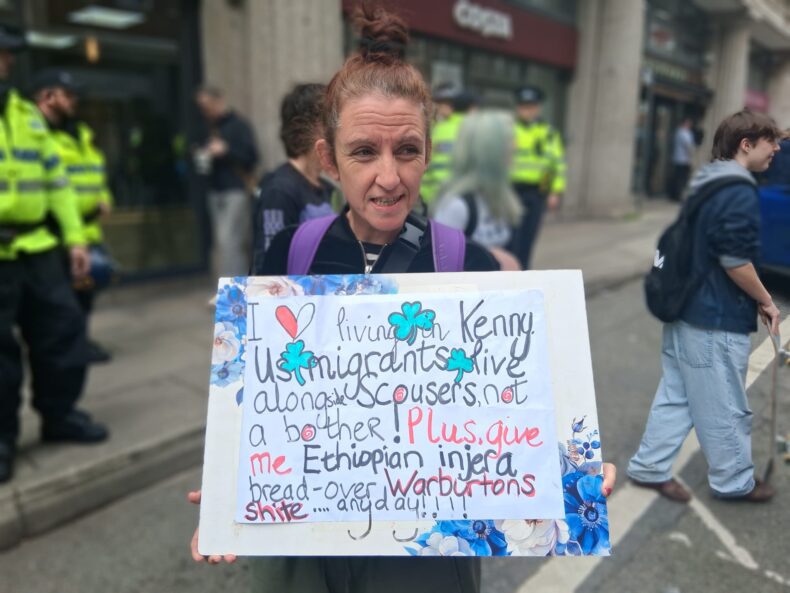 COSTA
I living in Kenny.
Us migrants live
alongside Scousers, not
a bother! Plus, give
me Ethiopian injera
bread-over Warburtons
shite .... anyday!!!!